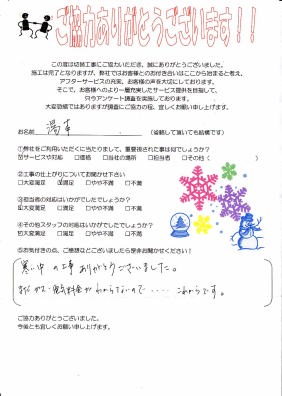 ご協力ありがとうございます!!
この度は切替工事にご協力いただき、誠にありがとうございました。
施工は完了となりますが、弊社ではお客様とのお付き合いはここから始まると考え、
アフターサービスの充実、お客様の声を大切にしております。
そこで、お客様へのより一層充実したサービス提供を目指して、
只今アンケート調査を実施しております。
大変恐縮ではありますが調査にご協力の程、宜しくお願い申し上げます。
お名前 湯本 (省略して頂いても結構です)
①弊社をご利用いただくに当たりまして、重要視された事は何でしょうか?
☑サービスや対応 □価格 □当社の場所 □担当者 □その他(
②工事の仕上がりについてお聞かせ下さい
□大変満足 ☑満足 □やや不満 □不満
③担当者の対応はいかがでしたでしょうか?
☑大変満足 □満足 □やや不満 □不満
④その他スタッフの対応はいかがでしたでしょうか?
☑大変満足 □満足 □やや不満 □不満
⑤お気付きの点、ご感想などございましたら是非お聞かせください!
寒い中の工事ありがとうございました。
まだガス・電気料金がわからないので・・・・・これからです。
ご協力ありがとうございました。
今後とも宜しくお願い申し上げます。